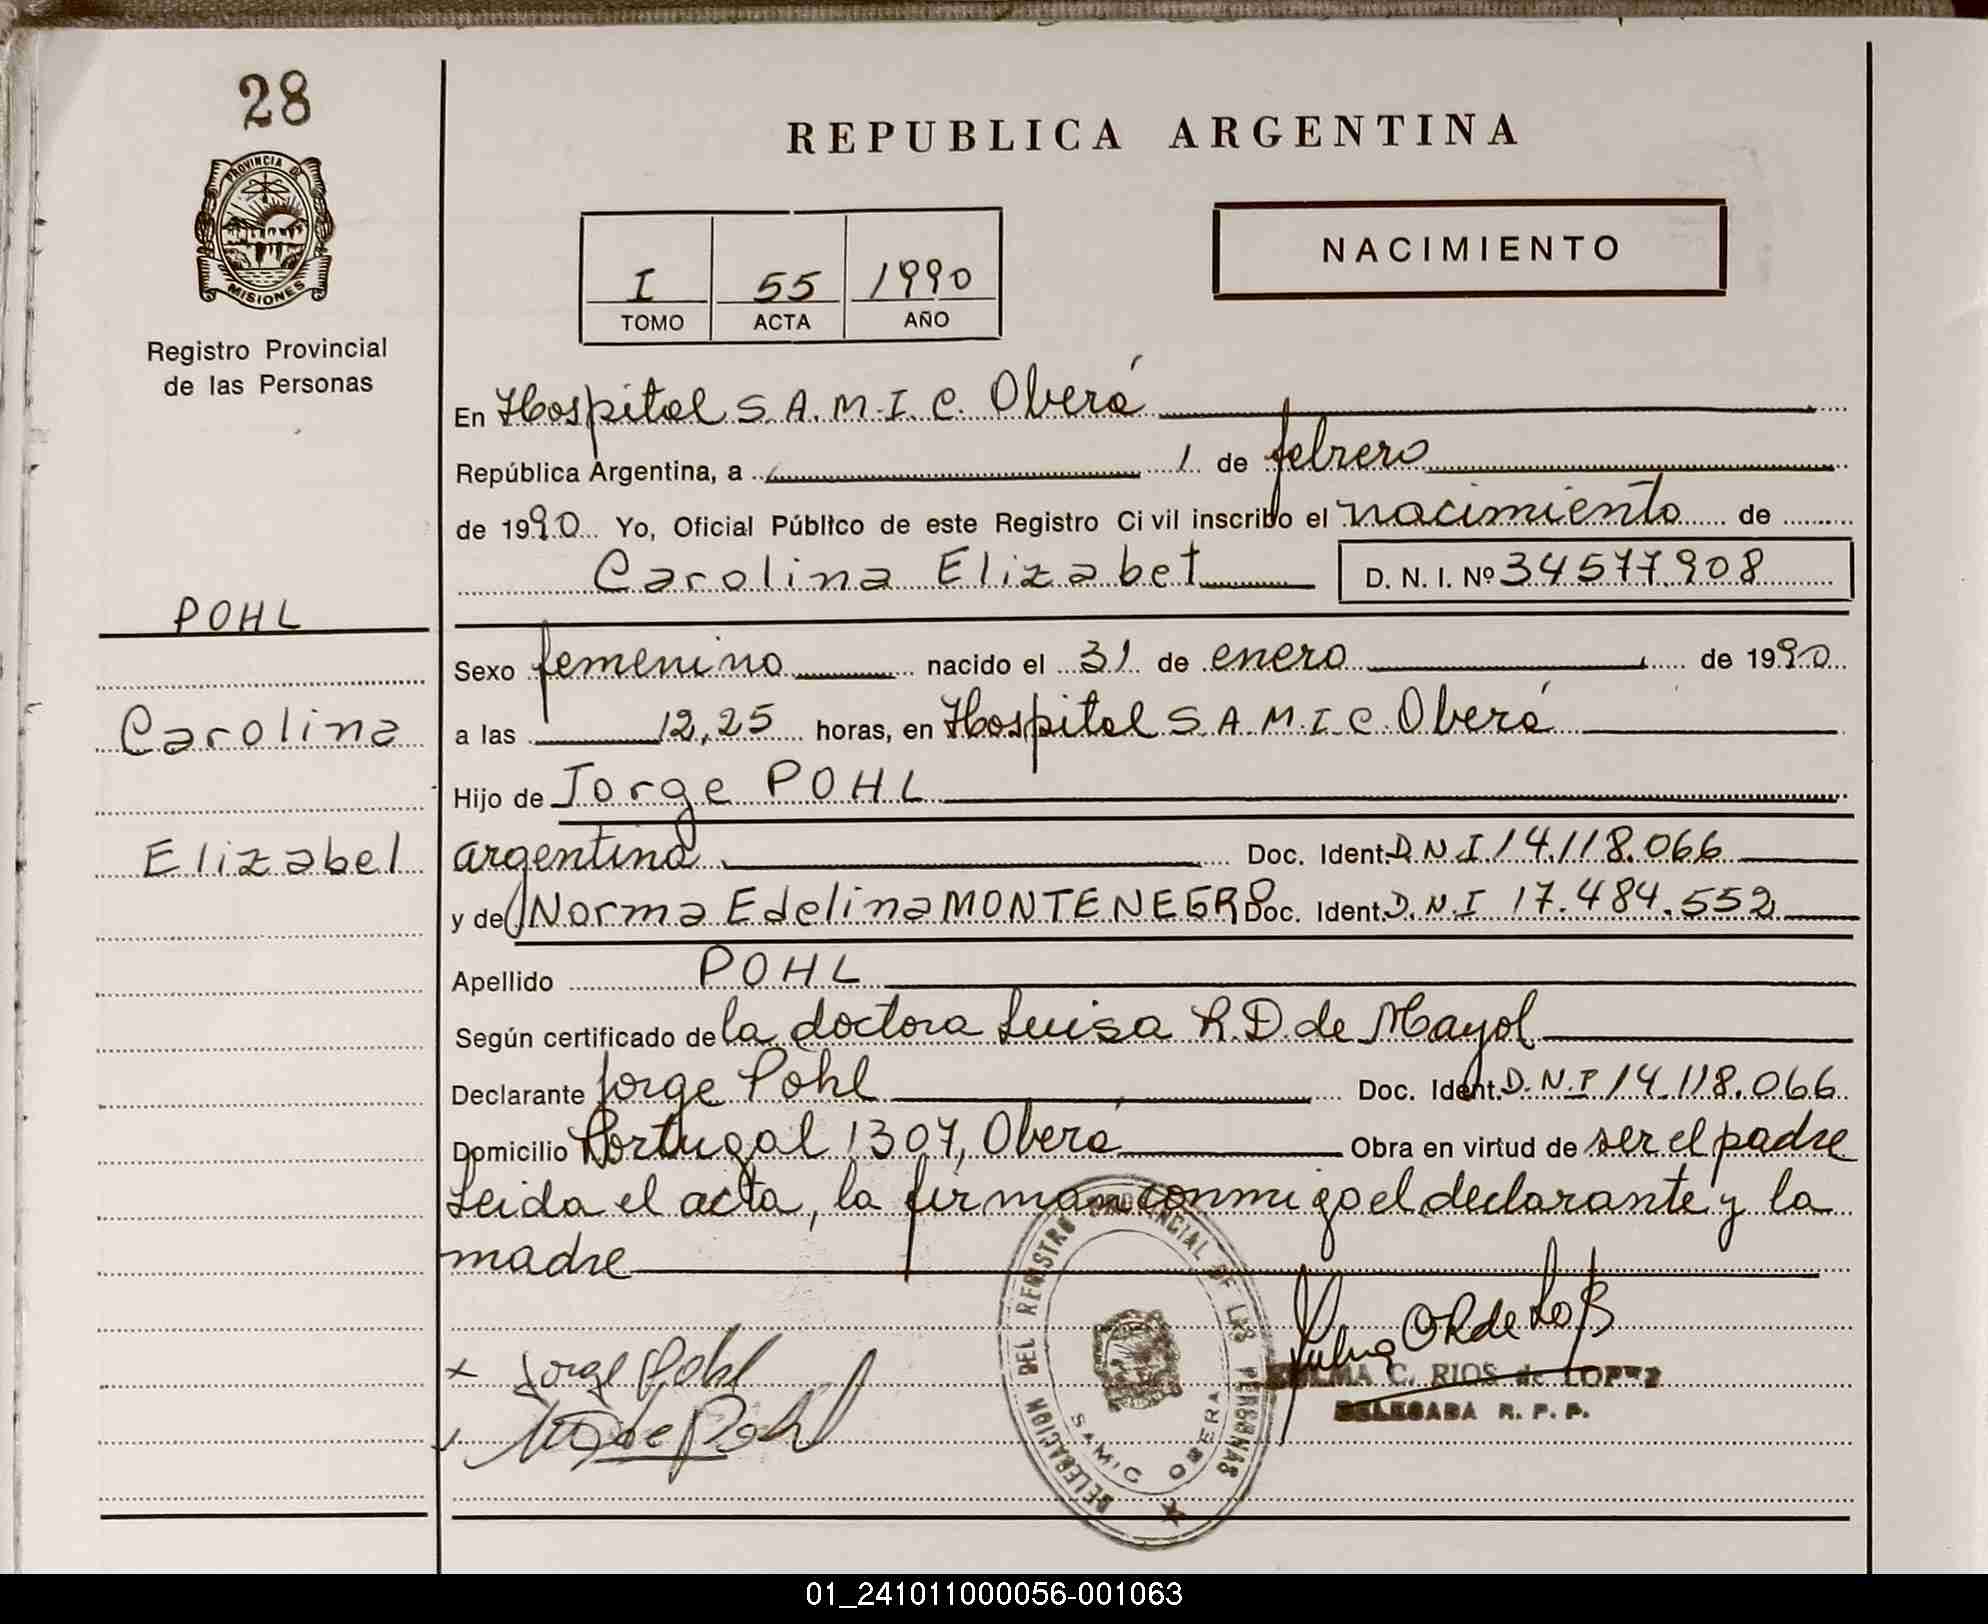 28
PROVINCIA DE
MISIONES
Registro Provincial
de las Personas
POHL
Carolina
Elizabel
REPUBLICA ARGENTINA
I 55 1990
TOMO ACTA AÑO
NACIMIENTO
En Hospital S.A.M.I.C. Oberá
República Argentina, a 1 de febrero
de 1990 Yo, Oficial Público de este Registro Civil inscribo el nacimiento de
Carolina Elizabet D. N. I. Nº 34577908
Sexo femenino nacido el 31 de enero de 1990
a las 12,25 horas, en Hospital S.A.M.I.C. Oberá
Hijo de Jorge POHL
argentina Doc. Ident. D.N.I 14.118.066
y de Norma Edelina MONTENEGRO Doc. Ident. D.N.I 17.484.552
Apellido POHL
Según certificado de la doctora Luisa R.D. de Mayol
Declarante Jorge Pohl Doc. Ident. D.N.I 14.118.066
Domicilio Portugal 1307, Oberá Obra en virtud de ser el padre
Leida el acta, la firman conmigo el declarante y la
madre
Jorge Pohl
de Pohl
DELEGACION DEL REGISTRO PROVINCIAL DE LAS PERSONAS
SAMIC OBERA
C. RIOS de LOPEZ
DELEGADA R. P. P.
01_241011000056-001063